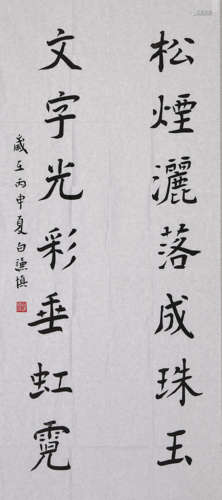 松煙灑落成珠玉
文字光彩垂虹霓
歲在丙申夏白謙慎